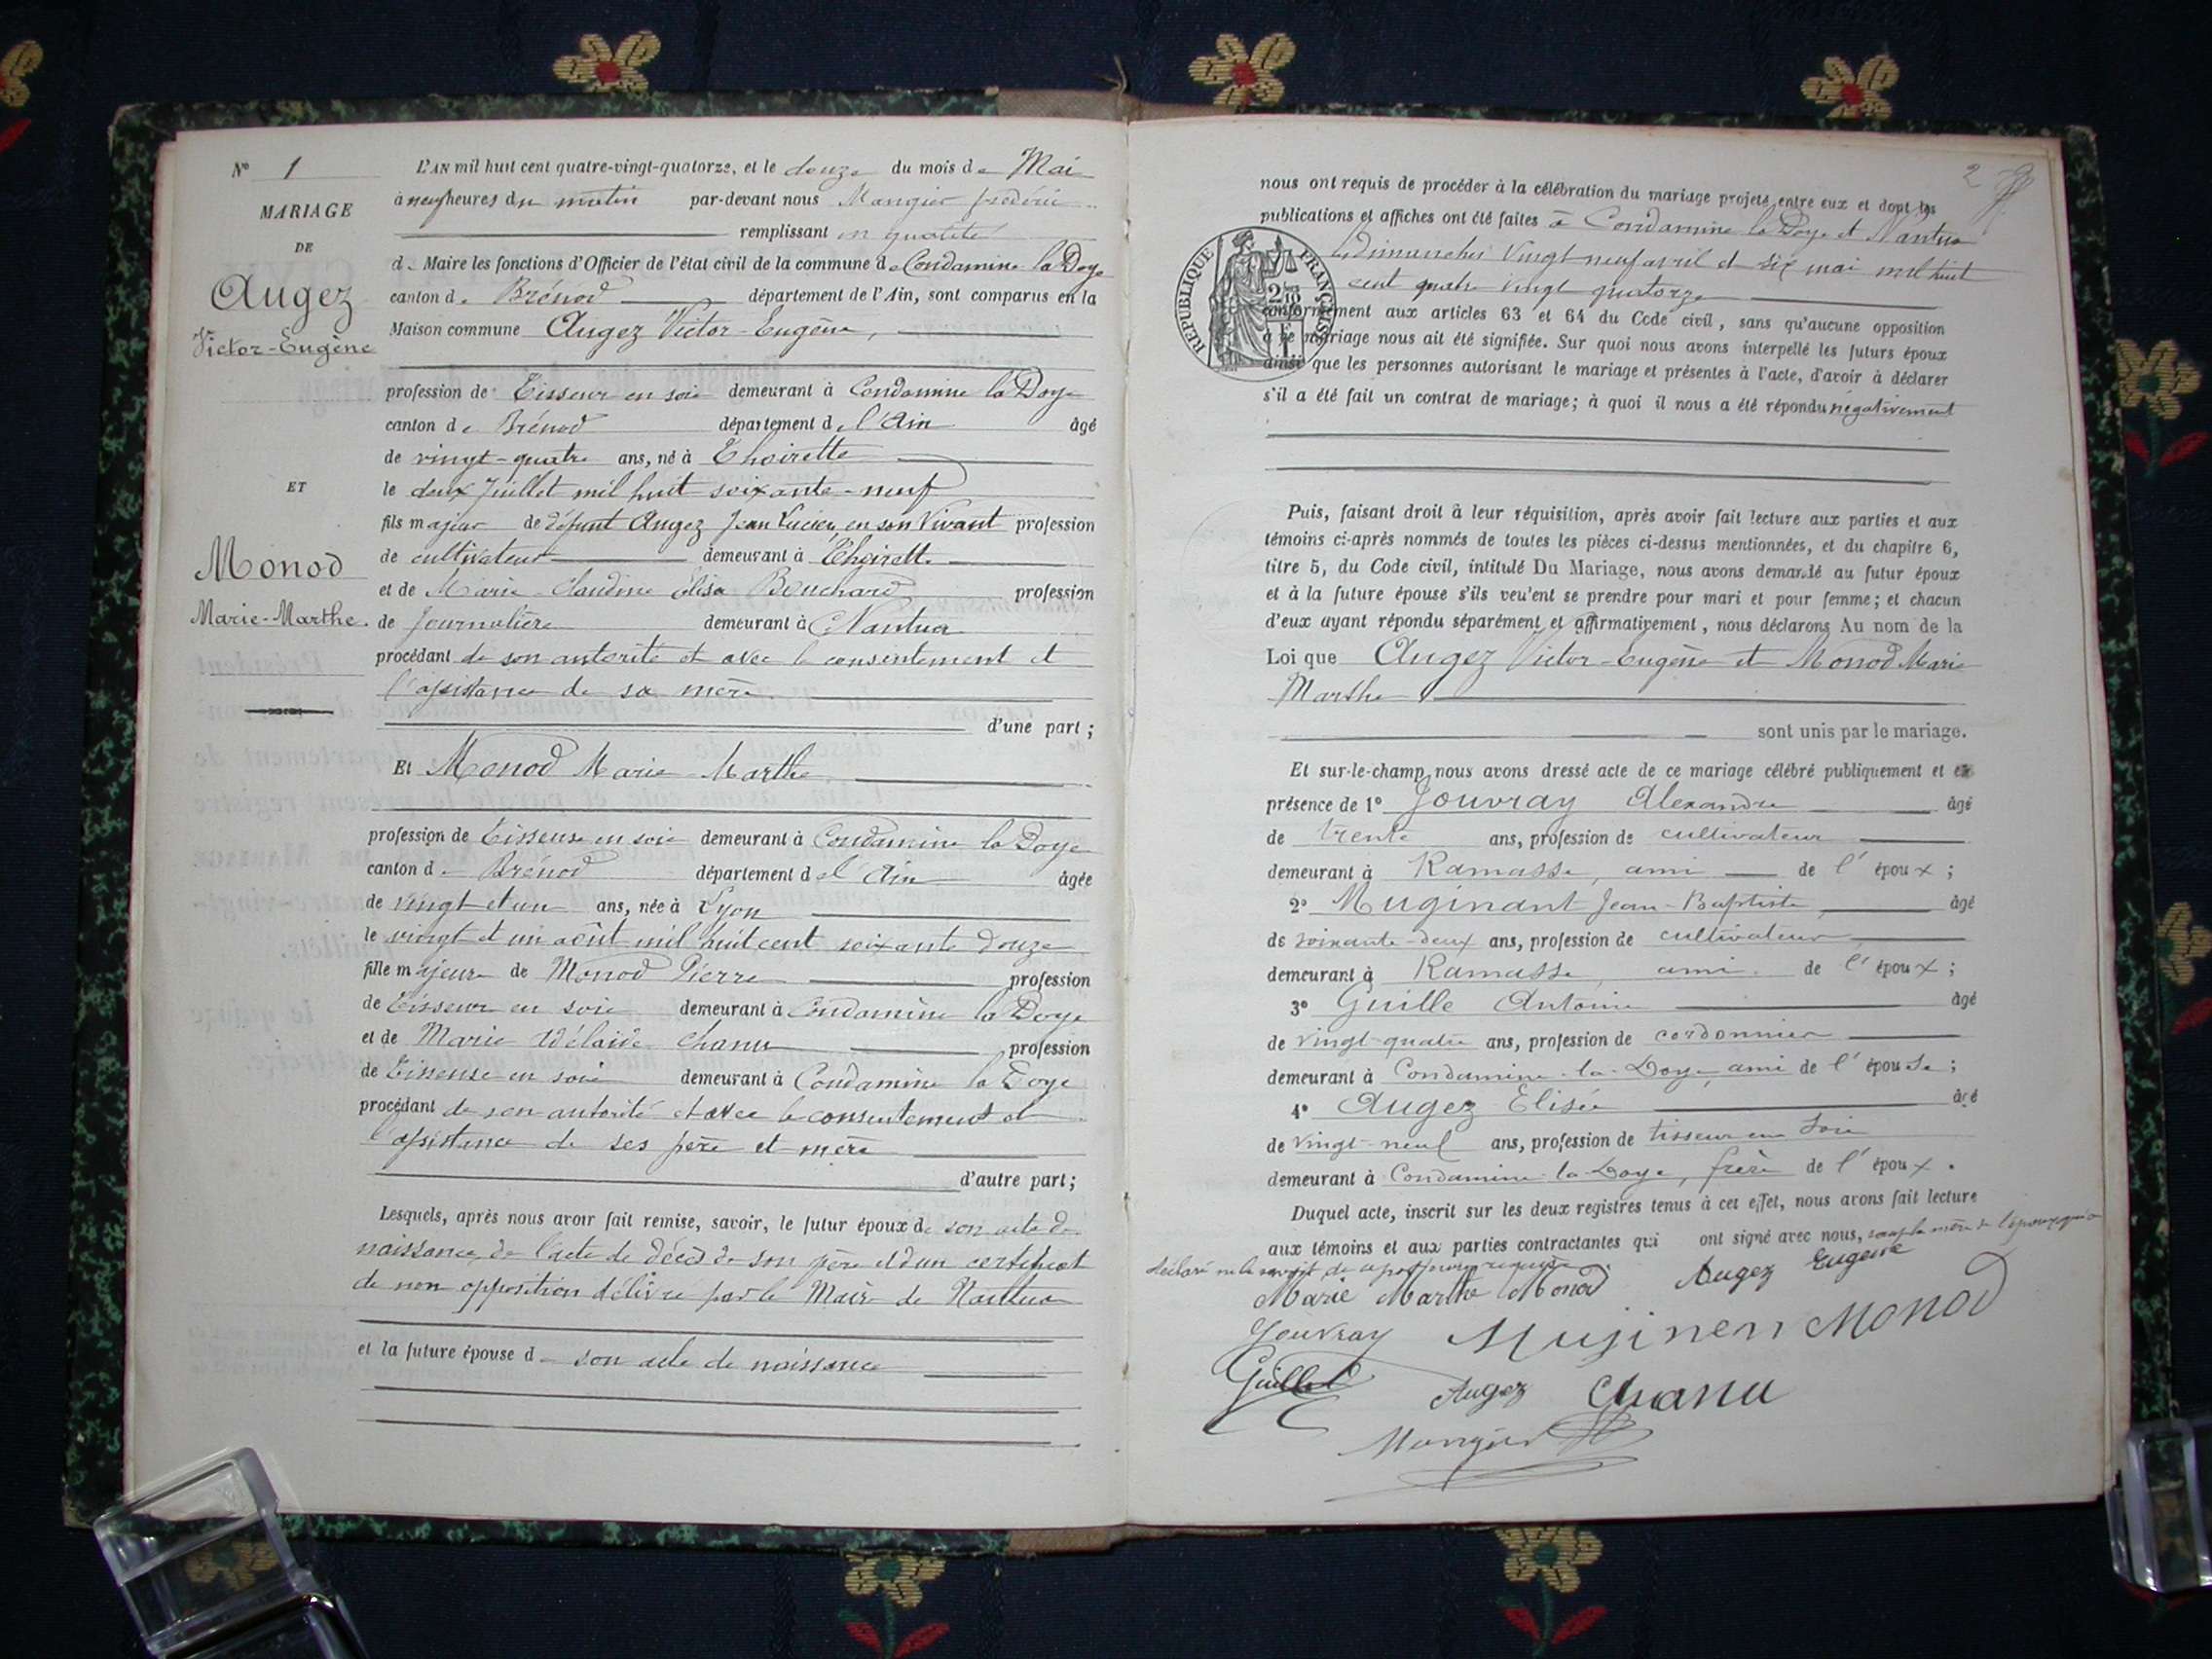 N° 1
MARIAGE
DE
Augez
Victor-Eugène
ET
Monod
Marie-Marthe.
L'AN mil huit cent quatre-vingt-quatorze, et le douze du mois de Mai
à neuf heures du matin par-devant nous Mangier frédéric
remplissant en qualité
de Maire les fonctions d'Officier de l'état civil de la commune de Condamine la Doye
canton de Brénod département de l'Ain, sont comparus en la
Maison commune Augez Victor-Eugène,
profession de Tisseur en soie demeurant à Condamine la Doye
canton de Brénod département de l'Ain âgé
de vingt-quatre ans, né à Thoirette
le deux Juillet mil huit soixante-neuf
fils majeur de défunt Augez Jean Lucien, en son Vivant profession
de cultivateur demeurant à Thoirette
et de Marie-Claudine élisa Bouchard profession
de Journalière demeurant à Nantua
procédant de son autorité et avec le consentement et
l'assistance de sa mère
d'une part;
Et Monod Marie-Marthe
profession de Tisseuse en soie demeurant à Condamine la Doye
canton de Brénod département de l'Ain âgée
de vingt et un ans, née à Lyon
le vingt et un août mil huit cent soixante douze
fille majeure de Monod Pierre profession
de Tisseur en soie demeurant à Condamine la Doye
et de Marie Adélaide Chanu profession
de Tisseuse en soie demeurant à Condamine la Doye
procédant de son autorité et avec le consentement et
l'assistance de ses père et mère
d'autre part;
Lesquels, après nous avoir fait remise, savoir, le futur époux de son acte de
naissance, de l'acte de décès de son père et d'un certificat
de non opposition délivré par le Maire de Nantua
et la future épouse de son acte de naissance
2
nous ont requis de procéder à la célébration du mariage projeté entre eux et dont les
publications et affiches ont été faites à Condamine la Doye et Nantua
les dimanches vingt neuf avril et six mai mil huit
cent quatre vingt quatorze
RÉPUBLIQUE FRANÇAISE
conformément aux articles 63 et 64 du Code civil, sans qu'aucune opposition
à ce mariage nous ait été signifiée. Sur quoi nous avons interpellé les futurs époux
ainsi que les personnes autorisant le mariage et présentes à l'acte, d'avoir à déclarer
s'il a été fait un contrat de mariage; à quoi il nous a été répondu négativement
Puis, faisant droit à leur réquisition, après avoir fait lecture aux parties et aux
témoins ci-après nommés de toutes les pièces ci-dessus mentionnées, et du chapitre 6,
titre 5, du Code civil, intitulé Du Mariage, nous avons demandé au futur époux
et à la future épouse s'ils veulent se prendre pour mari et pour femme; et chacun
d'eux ayant répondu séparément et affirmativement, nous déclarons Au nom de la
Loi que Augez Victor-Eugène et Monod Marie
Marthe
sont unis par le mariage.
Et sur-le-champ nous avons dressé acte de ce mariage célébré publiquement et en
présence de 1° Jouvray Alexandre âgé
de trente ans, profession de cultivateur
demeurant à Ramasse, ami de l'époux;
2° Muginant Jean-Baptiste, âgé
de soixante-deux ans, profession de cultivateur
demeurant à Ramasse, ami de l'époux;
3° Guille Antoine âgé
de vingt-quatre ans, profession de cordonnier
demeurant à Condamine-la-Doye, ami de l'épouse;
4° Augez Elisée âgé
de vingt-neuf ans, profession de tisseur en soie
demeurant à Condamine-la-Doye, frère de l'époux.
Duquel acte, inscrit sur les deux registres tenus à cet effet, nous avons fait lecture
aux témoins et aux parties contractantes qui ont signé avec nous, sauf la mère de l'époux qui a
déclaré ne le savoir de ce
Marie Marthe Monod Augez Eugène
Jouvray Mujinen Monod
Guille Augez Chanu
Mangier